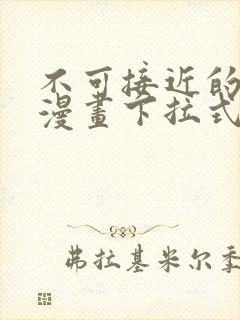 不可接近的
漫畫下拉式
弗拉基米尔季